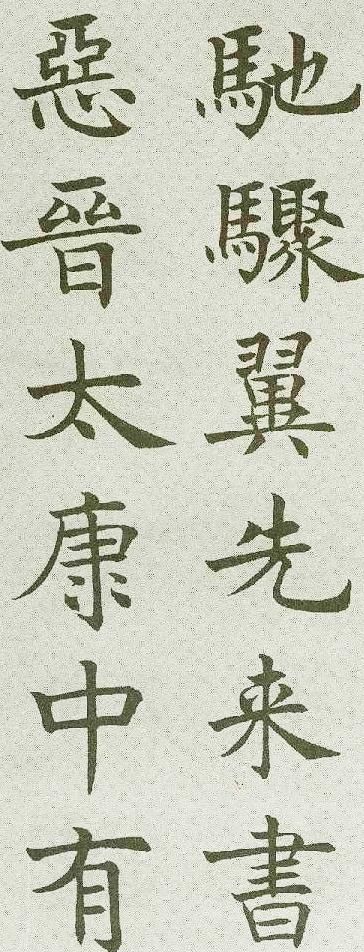 馳驟翼先来書
惡晉太康中有